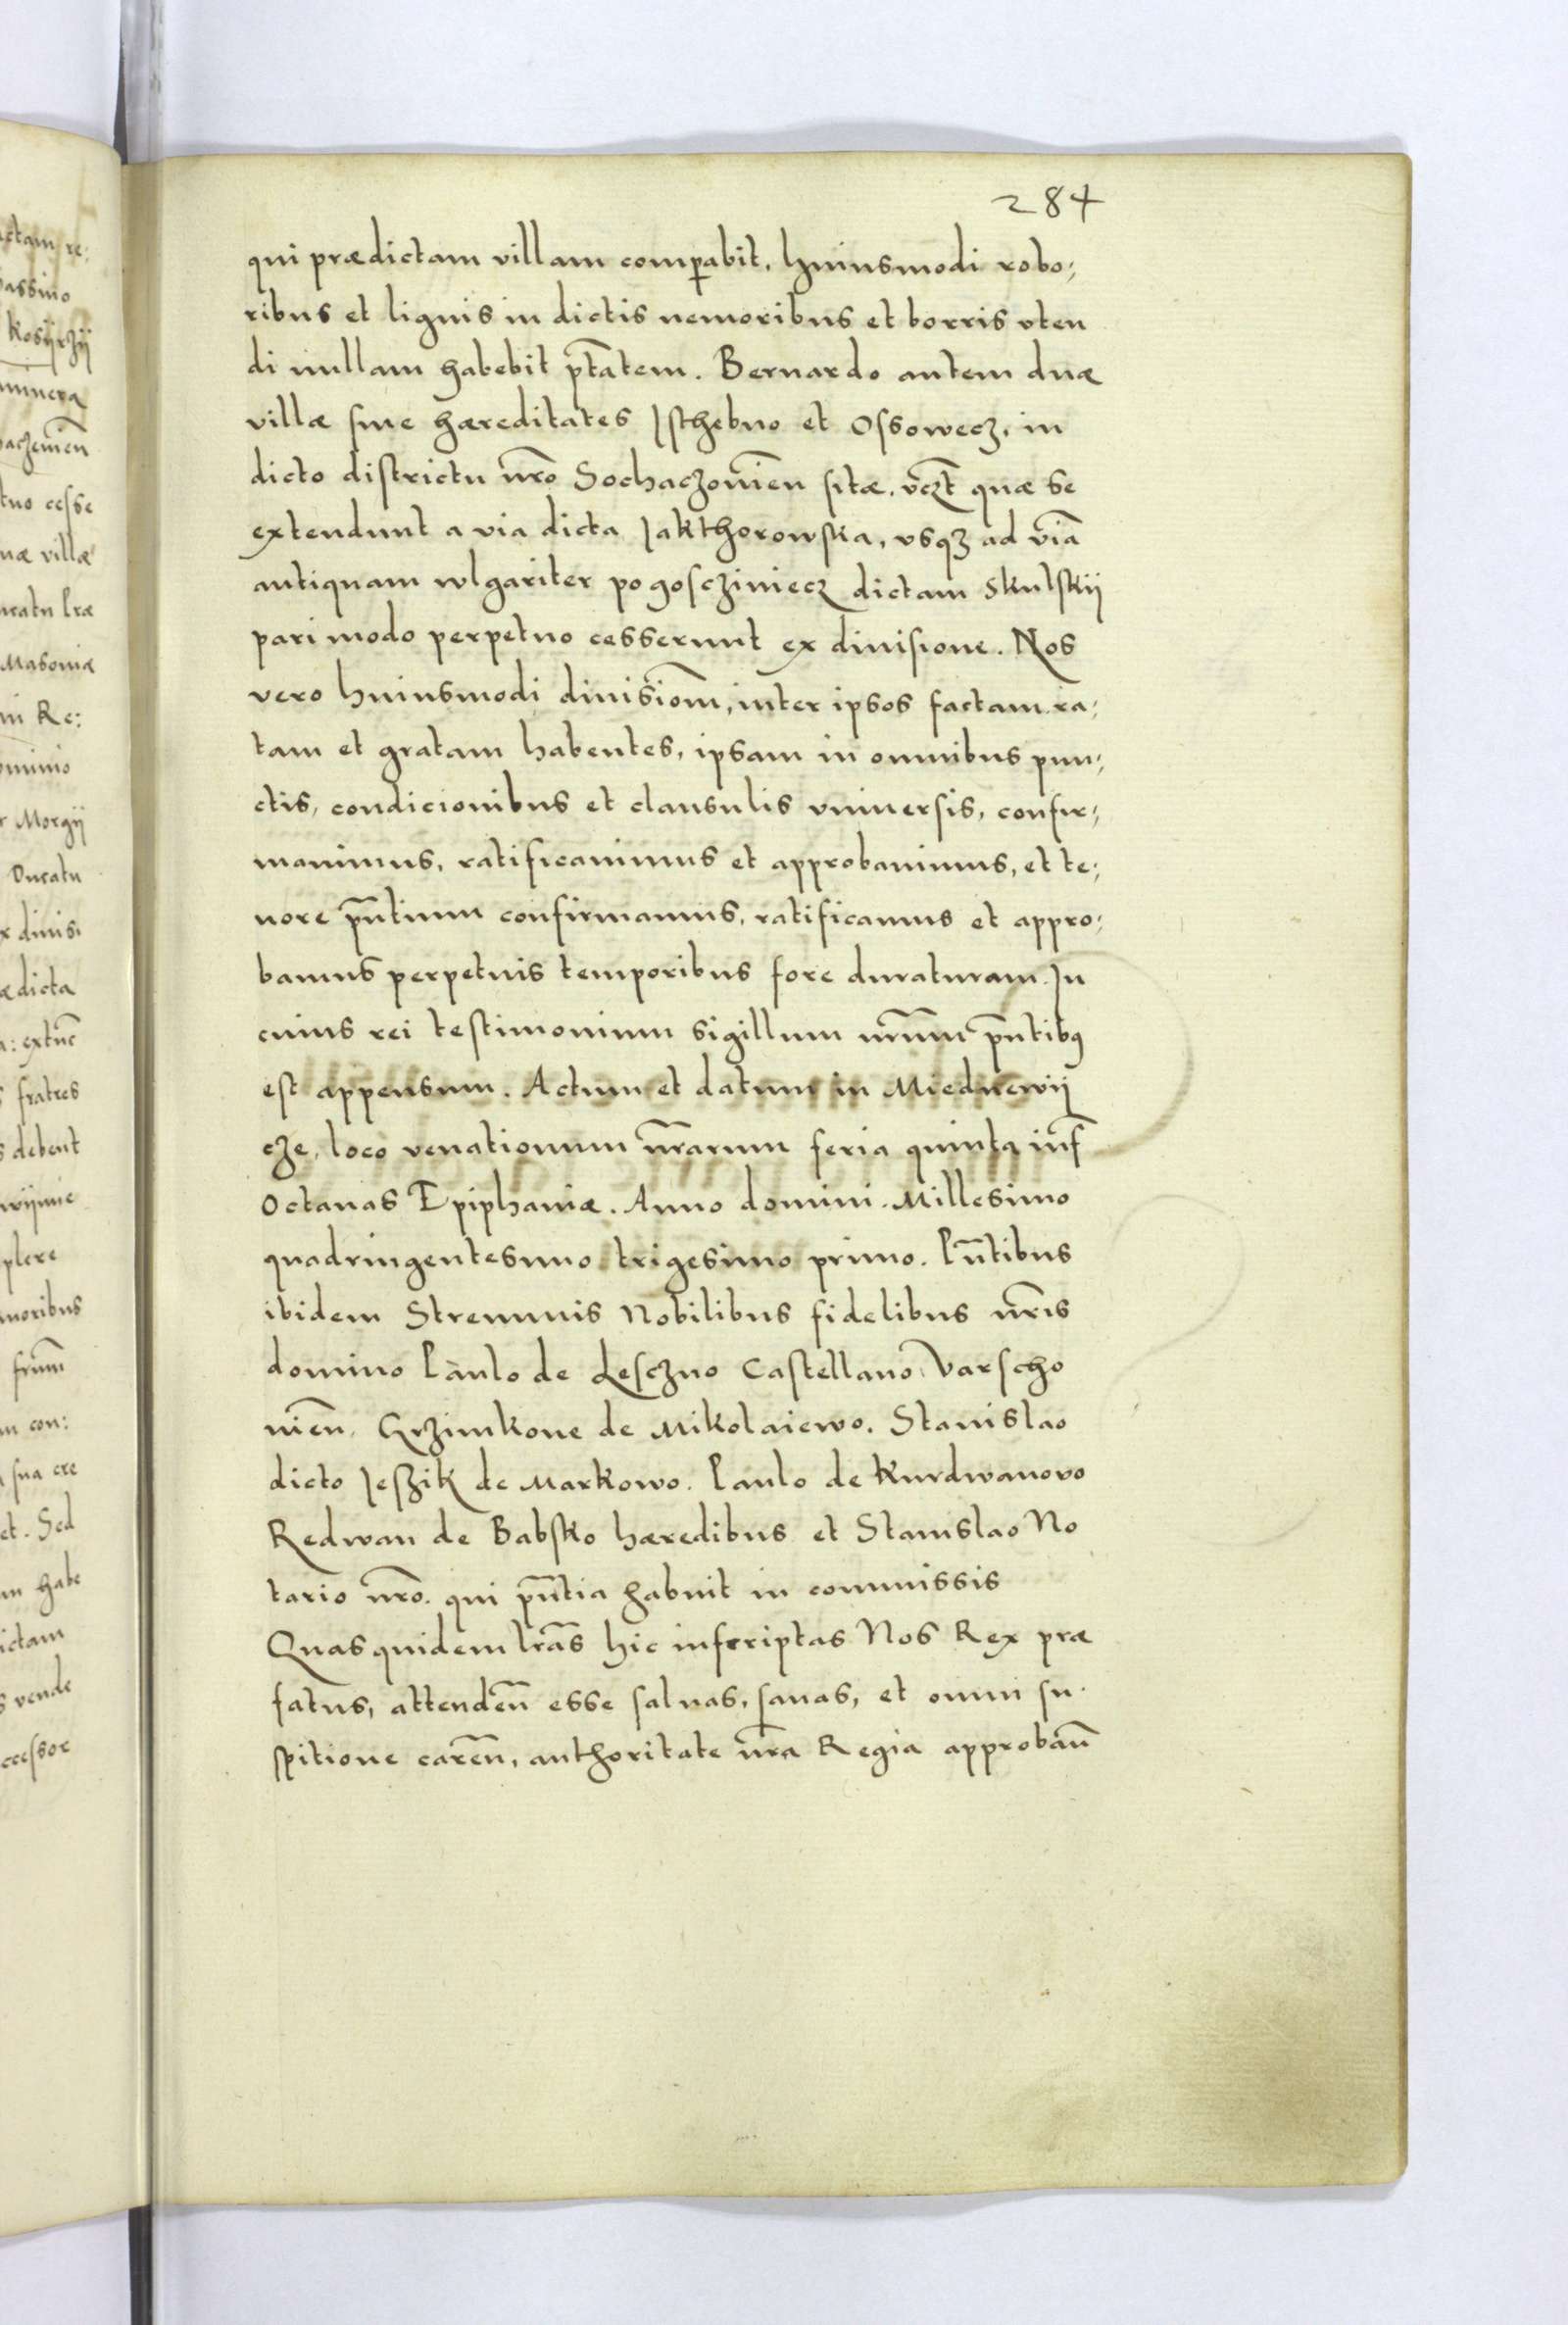 284
qui prædictam villam comparabit, huiusmodi robo;
ribus et lignis in dictis nemoribus et borris vten
di nullam habebit ptãtem. Bernardo autem duæ
villæ siue hæreditates Jsthebno et Ossowecz, in
dicto districtu nrõ Sochaczouieñ sitæ, vczt̃ quæ se
extendunt a via dicta Jakthorowska, vsqꝫ ad viã
antiquam wlgariter po goscziniecz dictam Skulskij
pari modo perpetuo cesserunt ex diuisione. Nos
vero huiusmodi diuisiom̃, inter ipsos factam ra;
tam et gratam habentes, ipsam in omnibus pun;
ctis, condicionibus et clausulis vniuersis, confir;
mauimus, ratificauimus et approbauimus, et te;
nore pñtium confirmamus, ratificamus et appro;
bamus perpetuis temporibus fore duraturam. Jn
cuius rei testimonium sigillum nrũm pñtibꝯ
est appensum. Actum et datum in Miednewij
cze, loco venationum nrãrum feria quinta inf̃
octauas Epiphaniæ. Anno domini Millesimo
quadringentesimo trigesimo primo. Pñtibus
ibidem Strennuis Nobilibus fidelibus nrĩs
domino Paulo de Lesczno Castellano Varscho
uieñ, Grzimkone de Mikolaiewo. Stanislao
dicto Jeszik de Markowo. Paulo de Kurdwanowo
Redwan de Babsko hæredibus et Stanislao No
tario nrõ. qui pñtia habuit in commissis
Quas quidem lrãs hic inscriptas Nos Rex præ
fatus, attendeñ esse saluas, sanas, et omni su
spitione careñ, authoritate nrã Regia approbañ